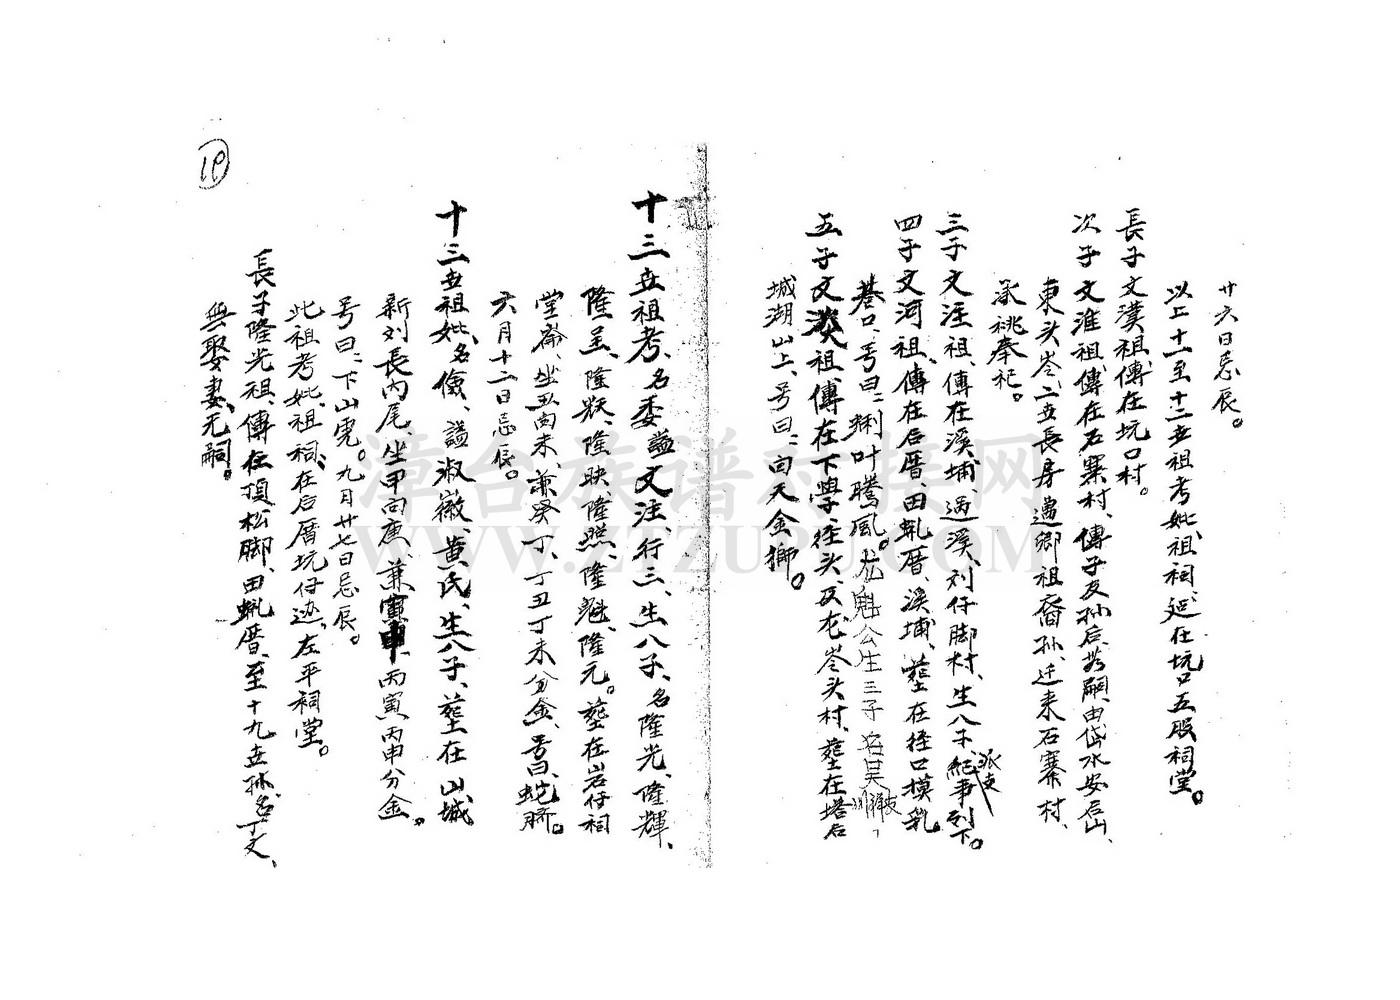 廿六日忌辰。
以上十一至十二世祖考妣祖祠、延在坑口五股祠堂。
長子文漢祖、傳在坑口村。
次子文淮祖傳在石寨村、傳子及孫后嗣由岱水安后山、
東头岺二世長房遷鄉祖裔孙、迁来石寨村、
承祧奉祀。
三子文注祖、傳在溪埔、过溪、刘仔脚村、生八子、紀事列下。
四子文河祖、傳在后厝田虬厝、溪埔、塟在徑口摸乳
巷口、号曰:蜊叶騰風。龙魁公生三子
五子文淡祖、傳在下學、徑头、及龙岺头村、塟在塔后
城湖山上、号曰:向天金獅。
十三世祖考、名委謚文注、行三、生八子、名隆光、隆輝、
隆呈、隆跃、隆映、隆照、隆魁、隆元。塟在岩仔祠
堂崙、坐丑向未、兼癸丁、丁丑丁未分金、号曰、蛇脐。
六月十二日忌辰。
十三世祖妣、名儉、謚淑徽、黄氏、生八子、塟在山城
新刘長内尾、坐甲向庚、兼寅申、丙寅丙申分金。
号曰:下山虎。九月廿七日忌辰。
此祖考妣、祖祠、在后厝坑仔边、左平祠堂。
長子隆光祖、傳在頂松脚、田虬厝、至十九世孙、名丁文、
無娶妻、无嗣。
19
漳台族谱对接网
WWW.ZTZUPU.COM